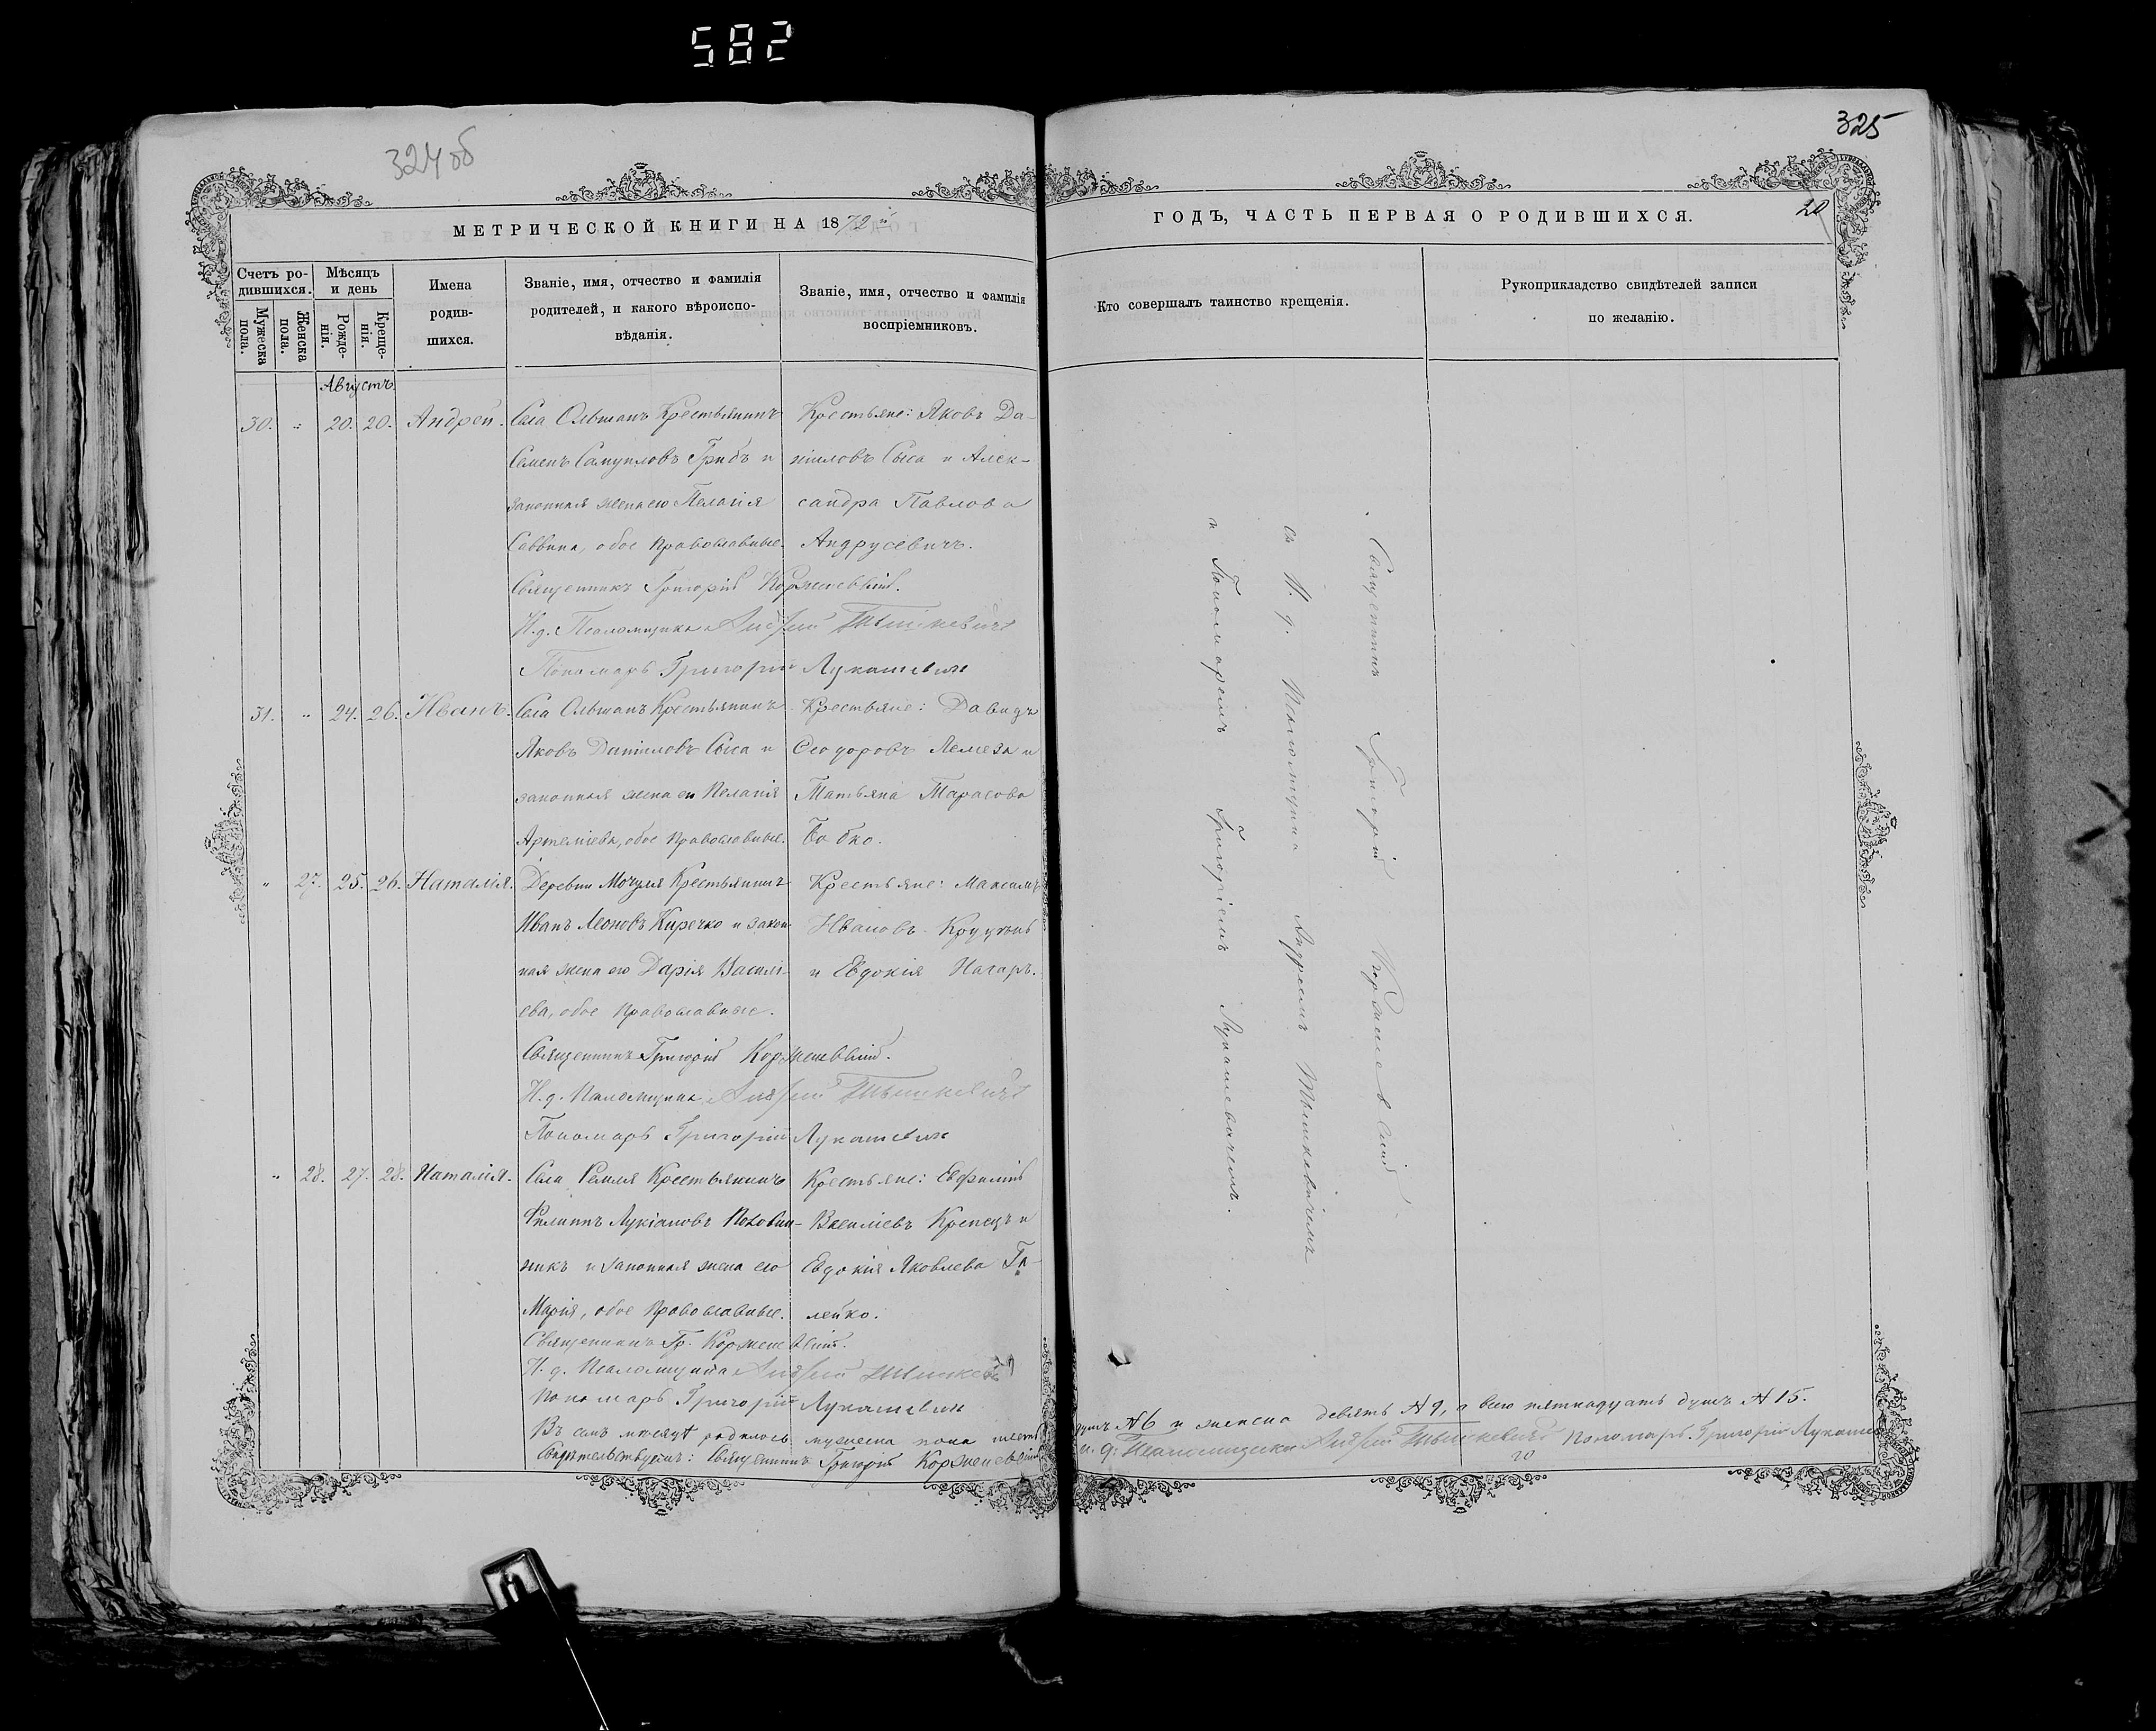 582
324 об
325
20
МЕТРИЧЕСКОЙ КНИГИ НА 1872й
ГОДЪ, ЧАСТЬ ПЕРВАЯ О РОДИВШИХСЯ.
Счетъ ро-
дившихся.
Мужеска
пола.
Женска
пола.
Мѣсяцъ
и день
Рожде-
нія.
Креще-
нія.
Имена
родив-
шихся.
Званіе, имя, отчество и фамилія
родителей, и какого вѣроиспо-
вѣданія.
Званіе, имя, отчество и фамилія
воспріемниковъ.
Кто совершалъ таинство крещенія.
Рукоприкладство свидѣтелей записи
по желанію.
Августъ.
30. " 20. 20. Андрей.
Села Ольшанъ Крестьянинъ
Семенъ Самуиловъ Грибъ и
законная жена его Пелагія
Саввина, обое Православные.
Крестьяне: Яковъ Да-
ніиловъ Сыса и Алек-
сандра Павлова
Андрусевичъ.
Священникъ Григорій Корженевскій.
И. д. Псаломщика Андрей Тышкевичъ
Пономарь Григорій Лукашевич
31. " 24. 26. Иванъ.
Села Ольшанъ Крестьянинъ
Яковъ Даніиловъ Сыса и
законная жена его Пелагія
Артеміева, обое Православные.
Крестьяне: Давидъ
Ѳеодоровъ Лемеза и
Татьяна Тарасова
Бобко.
" 27. 25. 26. Наталія.
Деревни Мочуля Крестьянинъ
Иванъ Леоновъ Киречко и закон-
ная жена его Дарія Василі-
ева, обое Православные.
Крестьяне: Максимъ
Ивановъ
и Евдокія
Священникъ Григорій Корженевскій.
И. д. Псаломщика Андрей Тышкевичъ
Пономарь Григорій Лукашевич
" 28. 27. 28. Наталія.
Села Ремля Крестьянинъ
Филиппъ Лукіановъ
и законная жена его
Марія, обое Православные.
Крестьяне: Евфимій
Василіевъ Крепецъ и
Евдокія Яковлева Га-
лейко.
Священникъ Гр. Корженевскій.
И. д. Псаломщика Андрей Тышкевичъ
Пономарь Григорій Лукашевич
Священникъ Григорій Корженевскій
съ И. д. Псаломщика Андреемъ Тышкевичемъ
и Пономаремъ Григоріемъ Лукашевичемъ.
Въ семъ мѣсяцѣ родилось мужеска пола шесть душъ № 6 и женска девять № 9, а всего пятнадцать душъ № 15.
Свидѣтельствуютъ: Священникъ Григорій Корженевскій И. д. Псаломщика Андрей Тышкевичъ Пономарь Григорій Лукашев
20